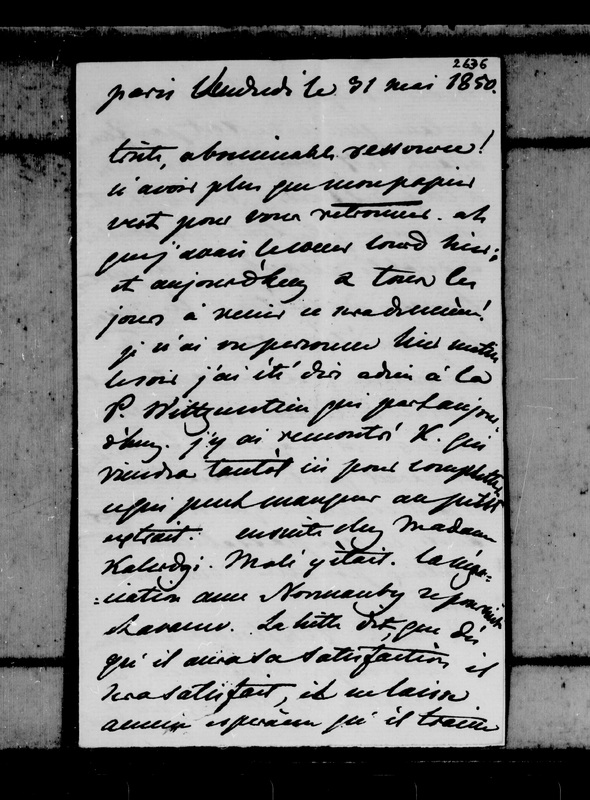 2636
paris Vendredi le 31 mai 1850.
triste, abominable ressource!
n'avoir plus que mon papier
vert pour vous retrouver. ah
que j'avais le coeur lourd hier;
et aujourd'huy & tous les
jours à venir ce sera de même!
je n'ai vu personne hier matin
le soir j'ai été dire adieu à la
P. Wittgenstein qui part aujour-
d'huy. j'y ai rencontré K. qui
viendra tantôt ici pour completter
ce qui peut manquer au petit
extrait. ensuite chez Madame
Kalerdgi. Molé y était. la négo-
=ciation avec Normanby se poursuit
La hitte dit, que dès
qu'il aura sa satisfaction il
sera satisfait, il ne laisse
aucune espérance qu'il traine